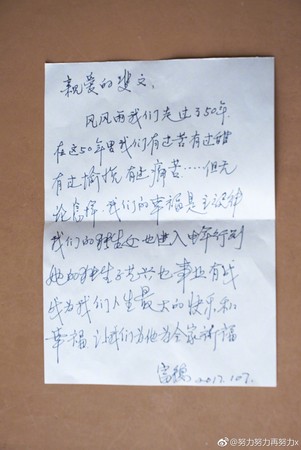 亲爱的斐文:
风风雨我们走过了50年
在这50年里我们有过苦有过甜
有过愉悦有过痛苦……但无
论怎样,我们的幸福是主
我们的独生女也进入中年行列
她的独生子 也事业有
成为我们人生最大的快乐和
幸福 让我们为他为全家祈福
2017.10
@努力努力再努力x